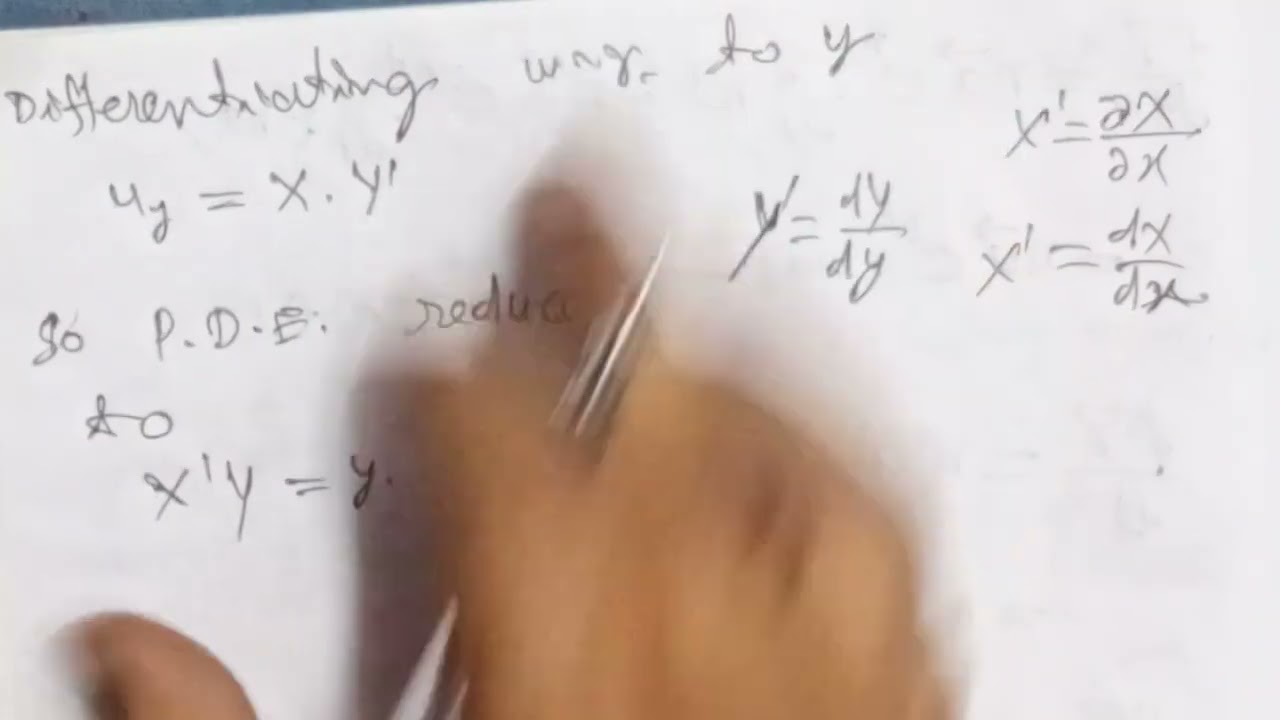 Differentiating w.r. to y
X' = ∂X/∂x
u_y = X . Y'
Y' = dY/dy
X' = dX/dx
So P.D.E. reduc
to
X'Y = y.